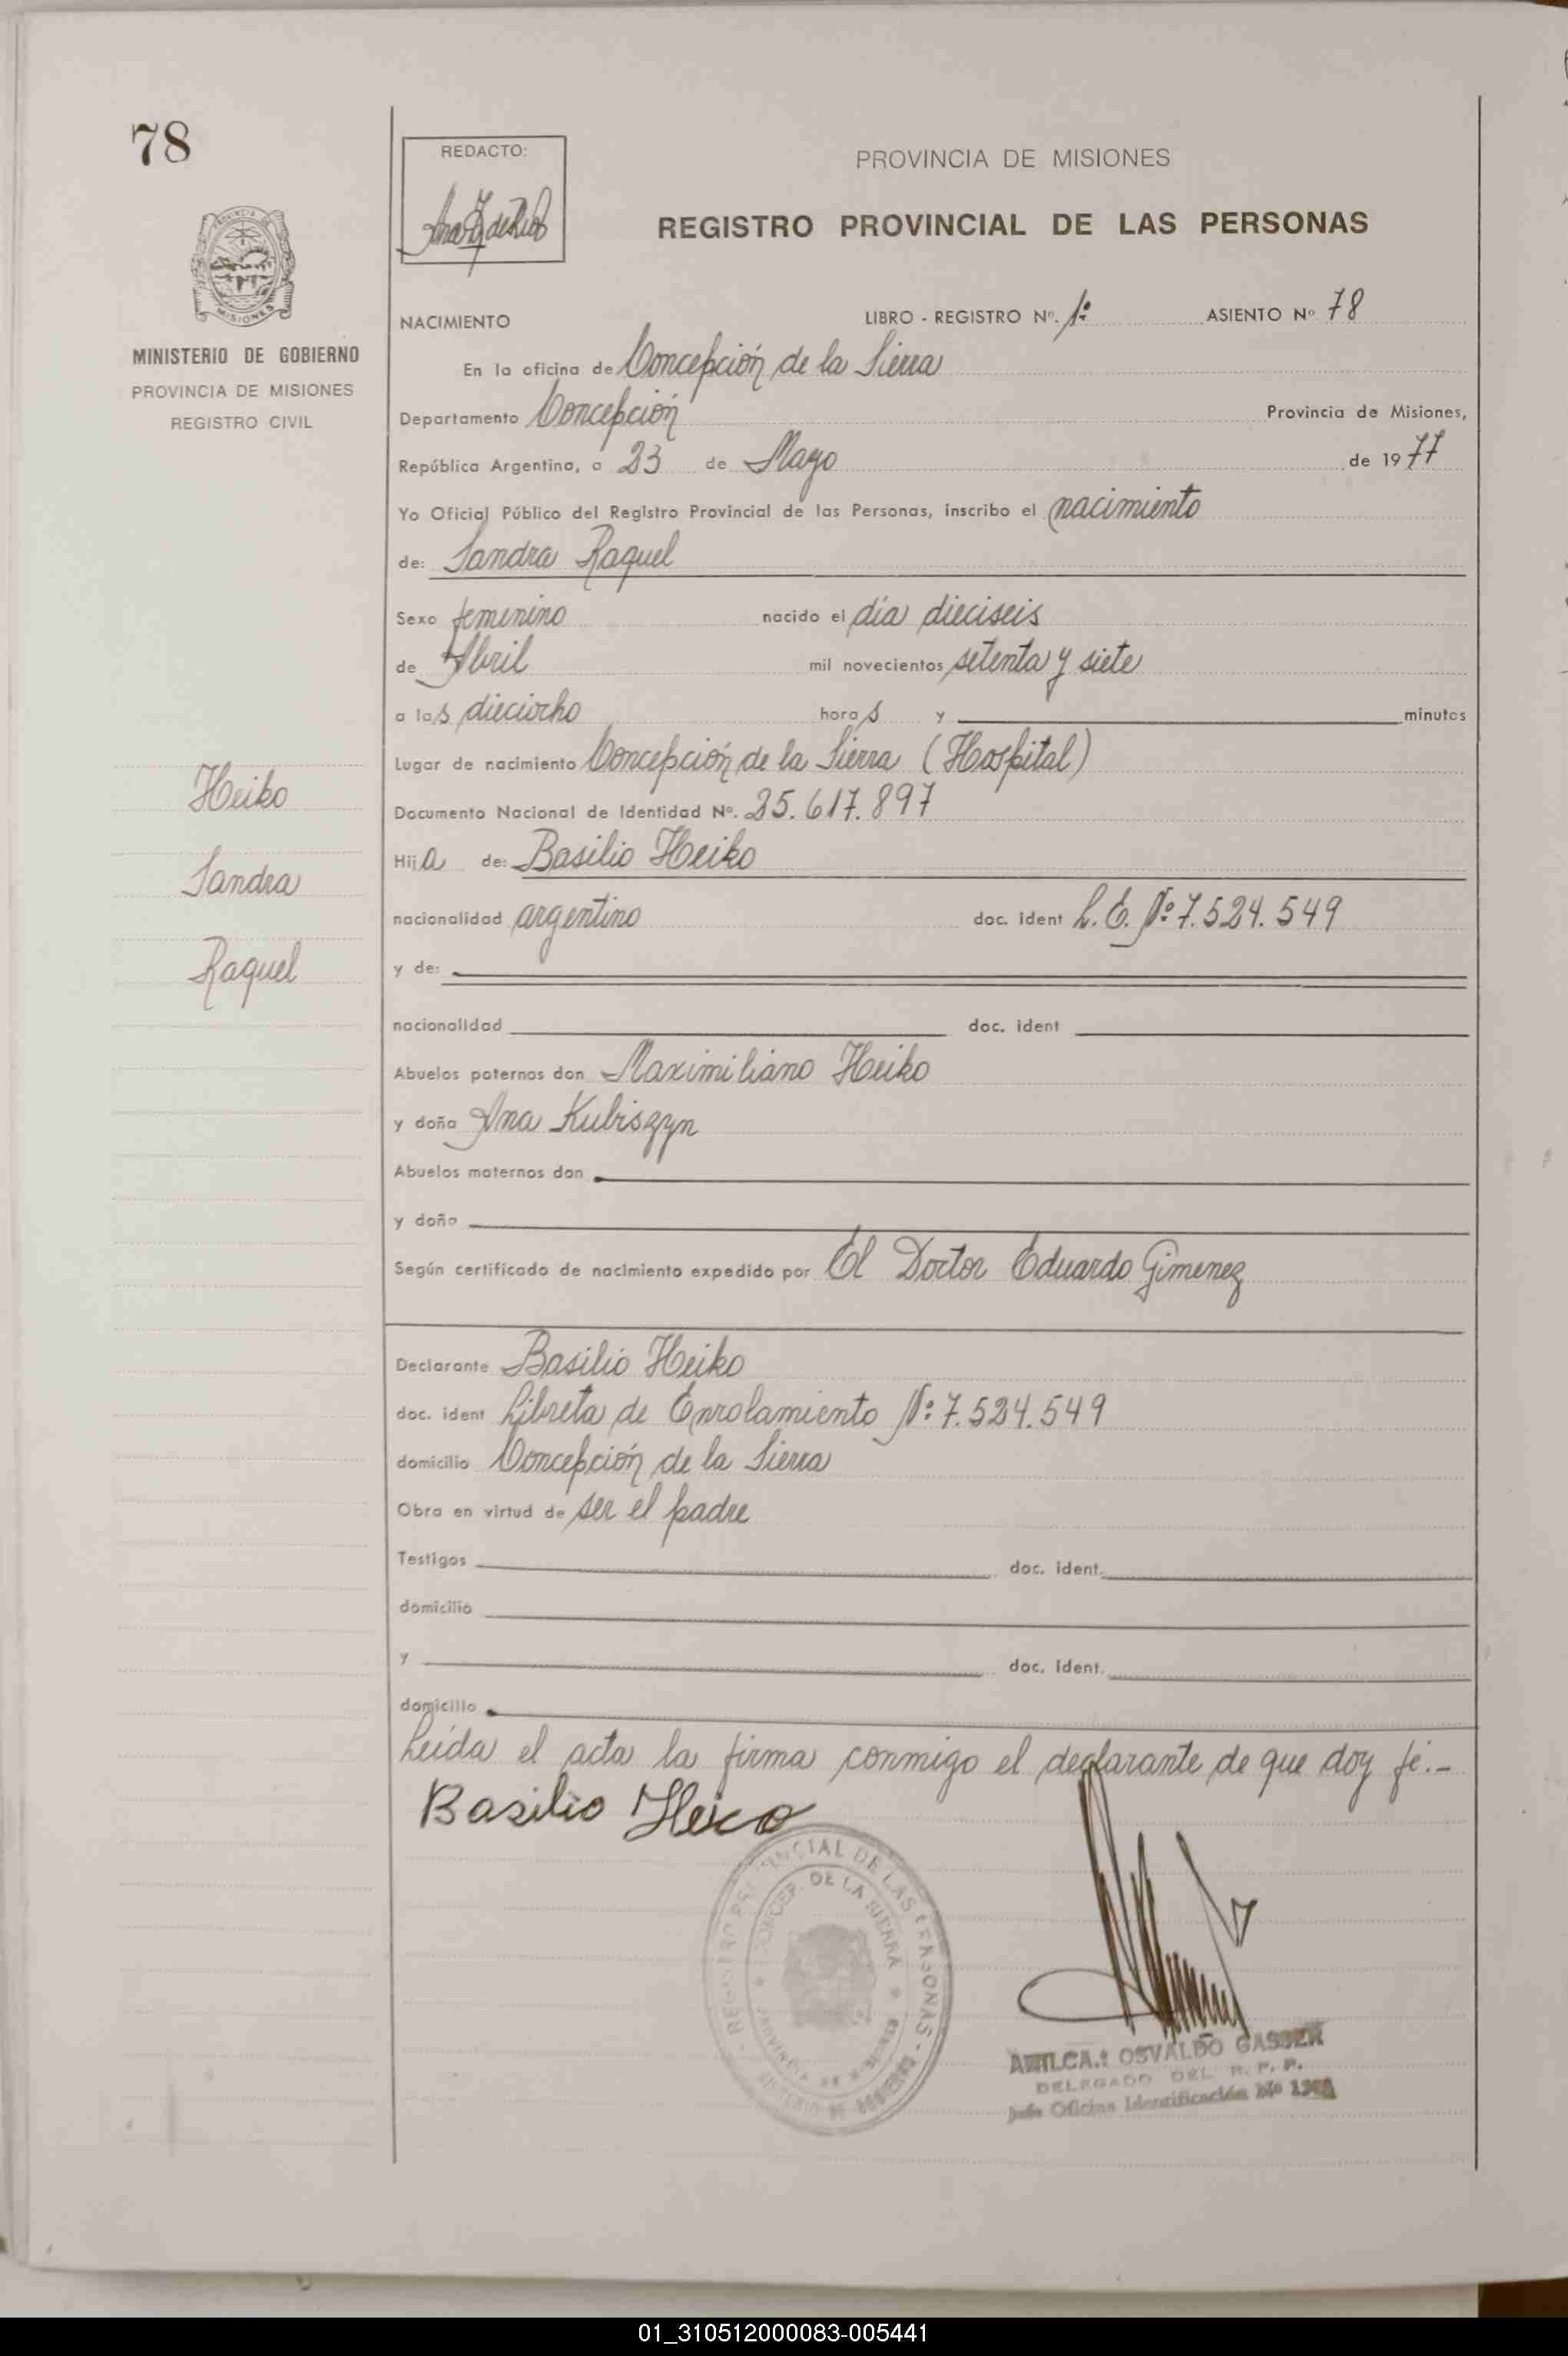 78
REDACTO:
PROVINCIA DE MISIONES
REGISTRO PROVINCIAL DE LAS PERSONAS
MISIONES
MINISTERIO DE GOBIERNO
PROVINCIA DE MISIONES
REGISTRO CIVIL
NACIMIENTO LIBRO - REGISTRO Nº. 1º ASIENTO Nº 78
En la oficina de Concepción de la Sierra
Departamento Concepción Provincia de Misiones,
República Argentina, a 23 de Mayo de 1977
Yo Oficial Público del Registro Provincial de las Personas, inscribo el nacimiento
de: Sandra Raquel
Sexo femenino nacido el día dieciseis
de Abril mil novecientos setenta y siete
a las dieciocho horas y minutos
Lugar de nacimiento Concepción de la Sierra (Hospital)
Documento Nacional de Identidad Nº. 25.617.897
Hija de: Basilio Heiko
nacionalidad argentino doc. ident L.E. Nº 7.524.549
y de:
nacionalidad doc. ident
Abuelos paternos don Maximiliano Heiko
y doña Ana Kubiszyn
Abuelos maternos don
y doña
Según certificado de nacimiento expedido por El Doctor Eduardo Gimenez
Heiko
Sandra
Raquel
Declarante Basilio Heiko
doc. ident Libreta de Enrolamiento Nº 7.524.549
domicilio Concepción de la Sierra
Obra en virtud de ser el padre
Testigos doc. ident.
domicilio
y doc. ident.
domicilio
Leída el acta la firma conmigo el declarante de que doy fé.-
Basilio Heico
REGISTRO PROVINCIAL DE LAS PERSONAS
CONCEP. DE LA SIERRA
OSVALDO GASSER
DELEGADO DEL R. P. P.
Jefe Oficina Identificación
01_310512000083-005441